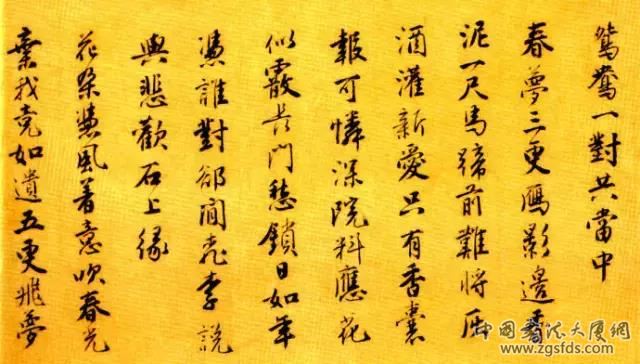 鴛鴦一對共當中
春夢三更雁影邊香
泥一尺馬蹄前難將灰
酒灌新愛只有香囊
報可憐深院料應花
似霰長門愁鎖日如年
憑誰對卻閒桃李說
與悲歡石上緣
花朵憑風着意吹春光
棄我竟如遺五更飛夢
中国书法大厦網
www.zgsfds.com